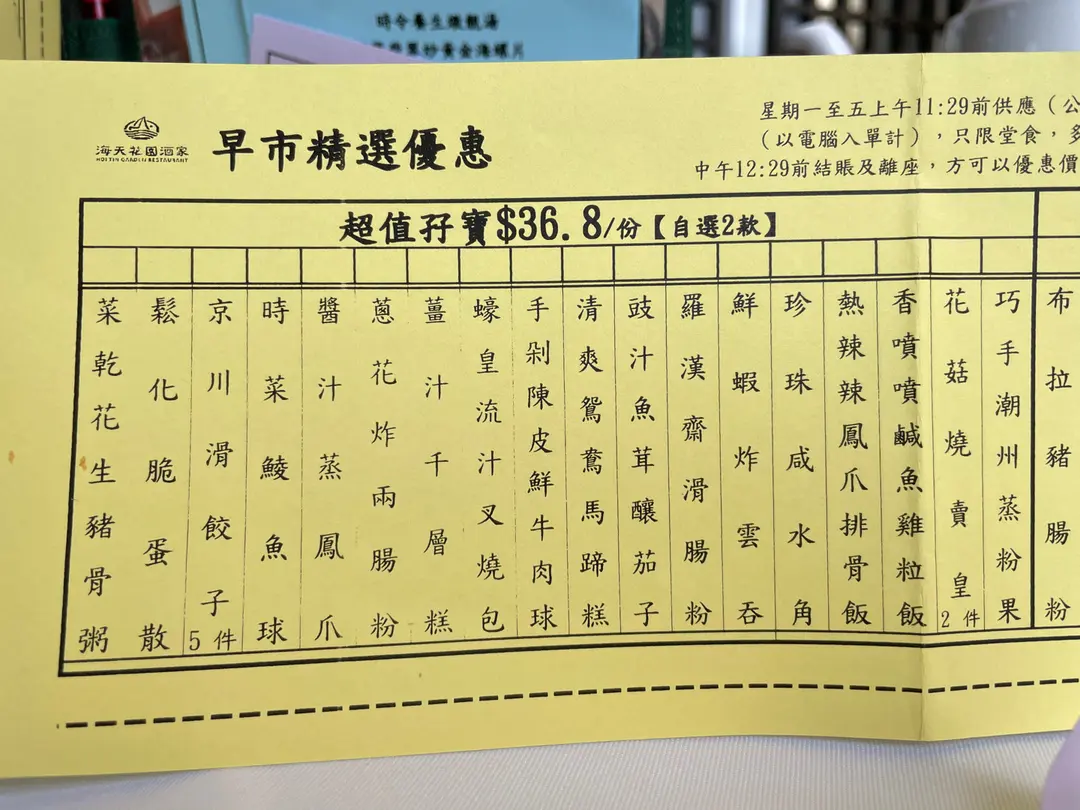 海天花園酒家
HOI TIN GARDEN RESTAURANT
早市精選優惠
星期一至五上午11:29前供應（公
（以電腦入單計），只限堂食，多
中午12:29前結賬及離座，方可以優惠價
超值孖寶$36.8/份【自選2款】
布拉豬腸粉
巧手潮州蒸粉果
花菇燒賣皇2件
香噴噴鹹魚雞粒飯
熱辣辣鳳爪排骨飯
珍珠咸水角
鮮蝦炸雲吞
羅漢齋滑腸粉
豉汁魚茸釀茄子
清爽鴛鴦馬蹄糕
手剁陳皮鮮牛肉球
蠔皇流汁叉燒包
薑汁千層糕
蔥花炸兩腸粉
醬汁蒸鳳爪
時菜鯪魚球
京川滑餃子5件
鬆化脆蛋散
菜乾花生豬骨粥